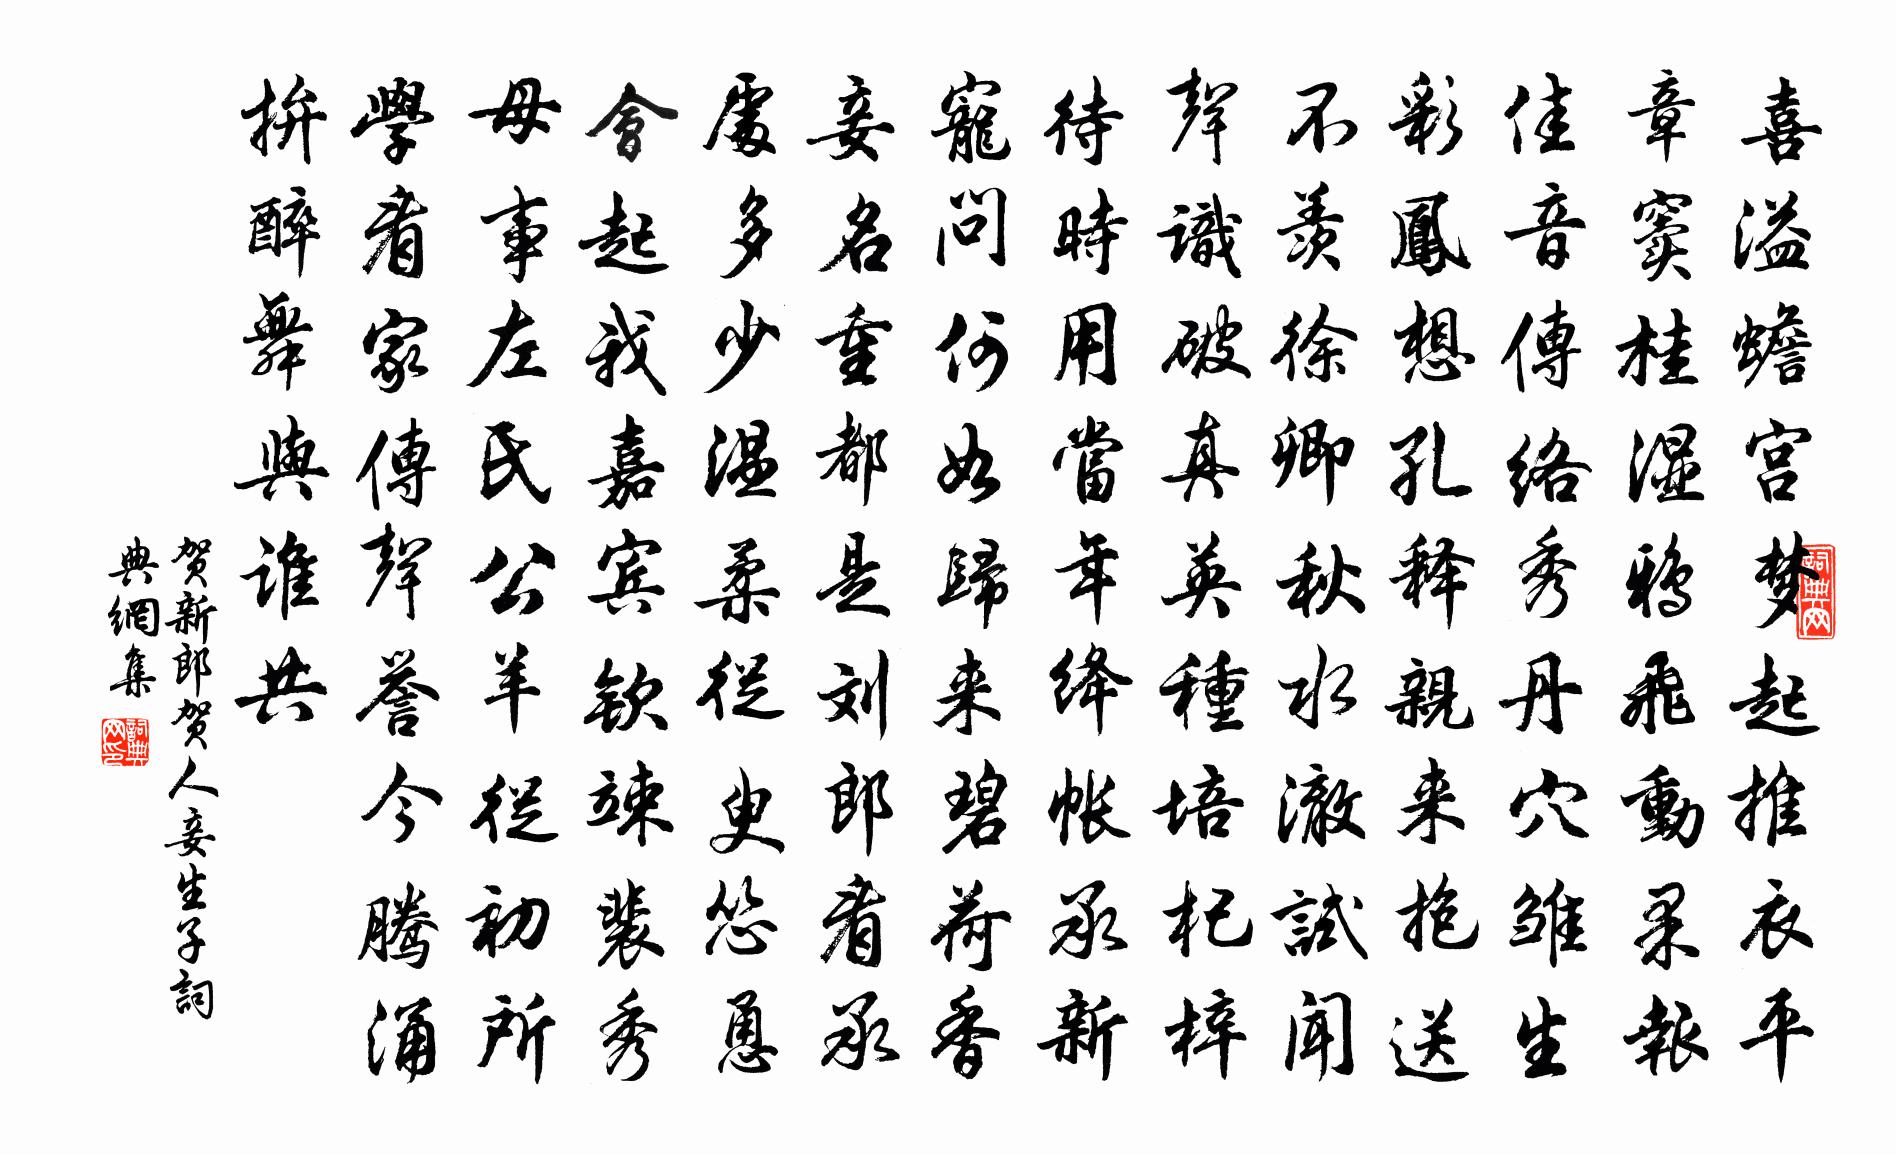 喜溢蟾宫梦起推衣平
章窦桂湿鸦飛動果報
佳音傳络秀丹穴雏生
彩鳳想孔释親来抱送
不羨徐卿秋水澈試闻
聲識破真英種培杞梓
待時用當年绛帐承新
寵问何如歸来碧荷香
妾名重都是刘郎看承
處多少温柔從臾怂恿
會起我嘉宾欽竦裴秀
母事左氏公羊從初所
學看家傳聲誉今腾涌
拚醉舞與谁共
贺新郎贺人妾生子詞
典網集